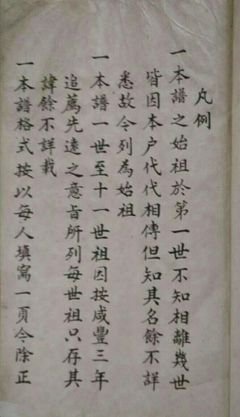 凡例
一本譜之始祖於第一世不知相離幾世
皆因本户代代相傳但知其名餘不詳
悉故令列為始祖
一本譜一世至十一世祖因按咸豐三年
追薦先遠之意旨所列每世祖只存其
諱餘不詳載
一本譜格式按以每人填寫一頁今除正